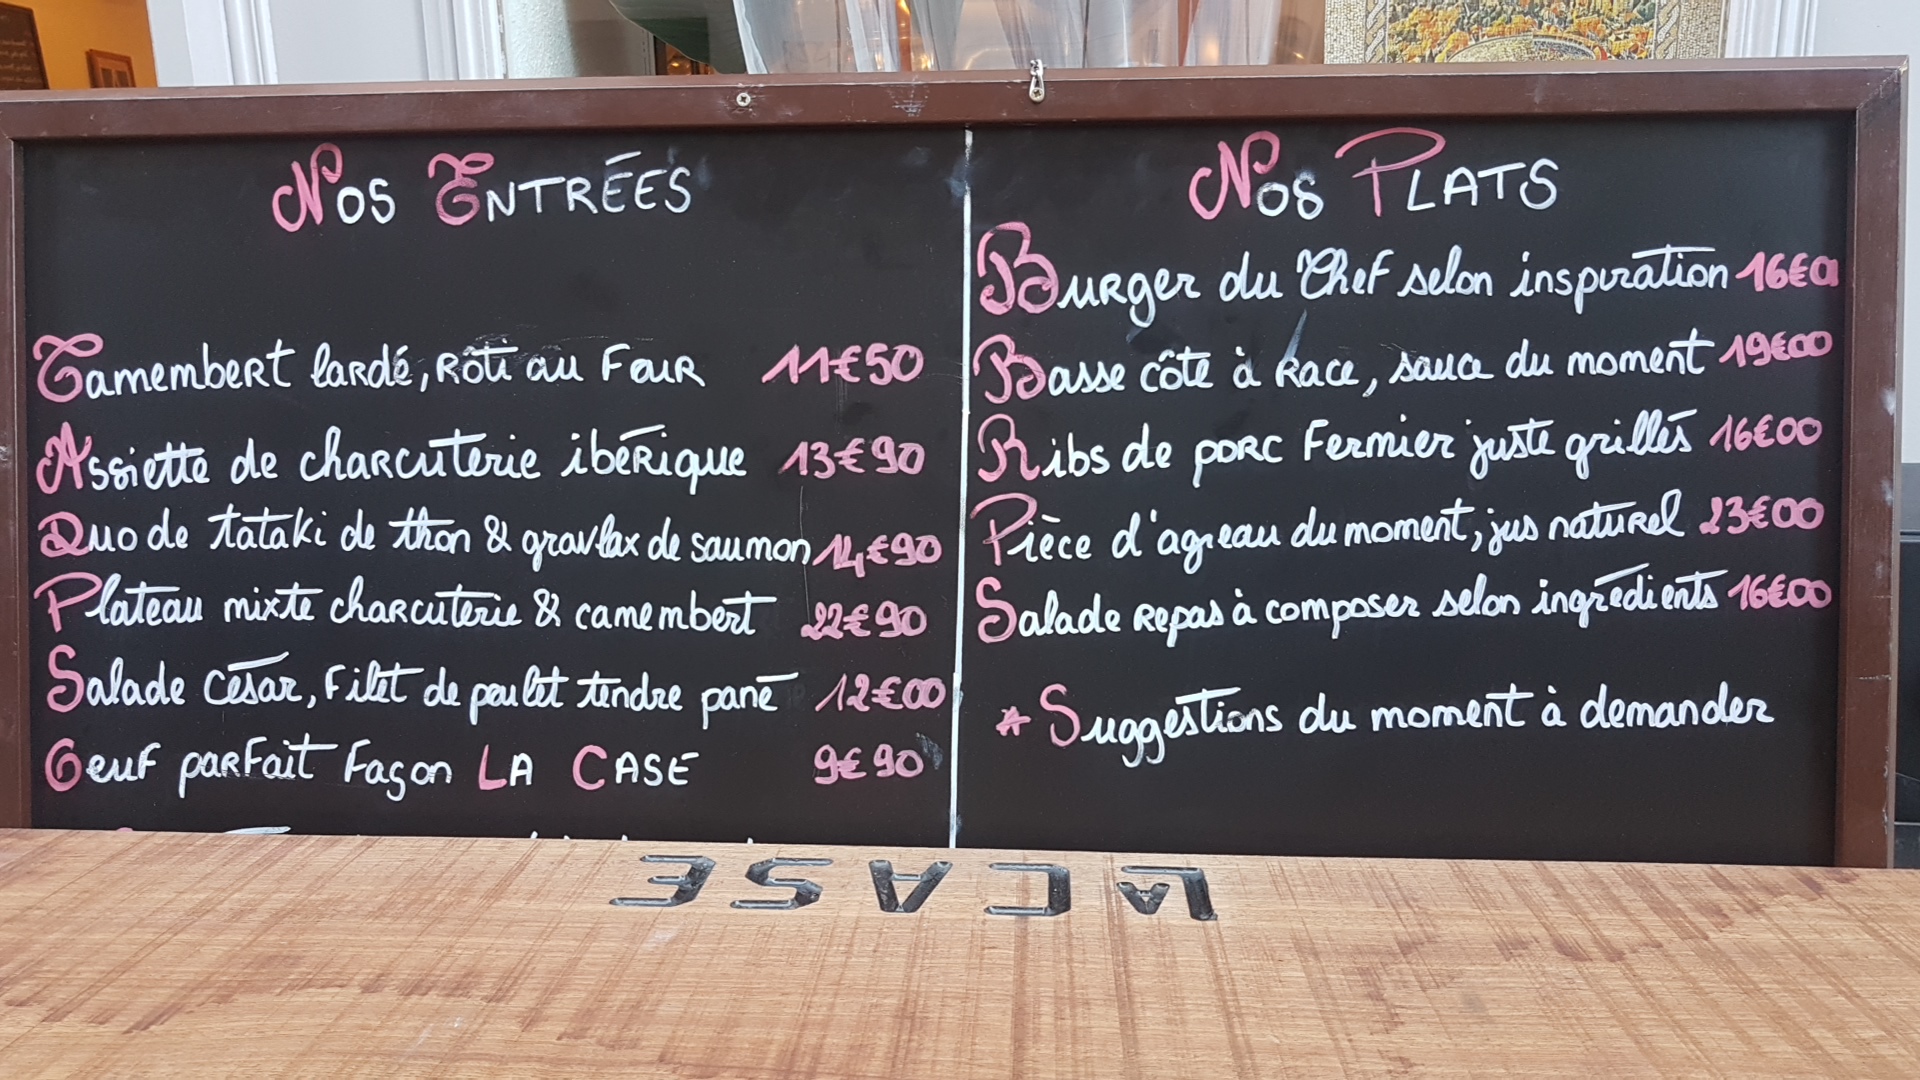 Nos Entrées
Camembert lardé, rôti au Four 11€50
Assiette de charcuterie ibérique 13€90
Duo de tataki de thon & gravlax de saumon 14€90
Plateau mixte charcuterie & camembert 22€90
Salade césar, Filet de poulet tendre pané 12€00
Oeuf parfait façon LA CASE 9€90
Nos Plats
Burger du Chef selon inspiration 16€0
Basse côte à Race, sauce du moment 19€00
Ribs de porc Fermier juste grillés 16€00
Pièce d'agneau du moment, jus naturel 23€00
Salade Repas à composer selon ingrédients 16€00
* Suggestions du moment à demander
LA CASE